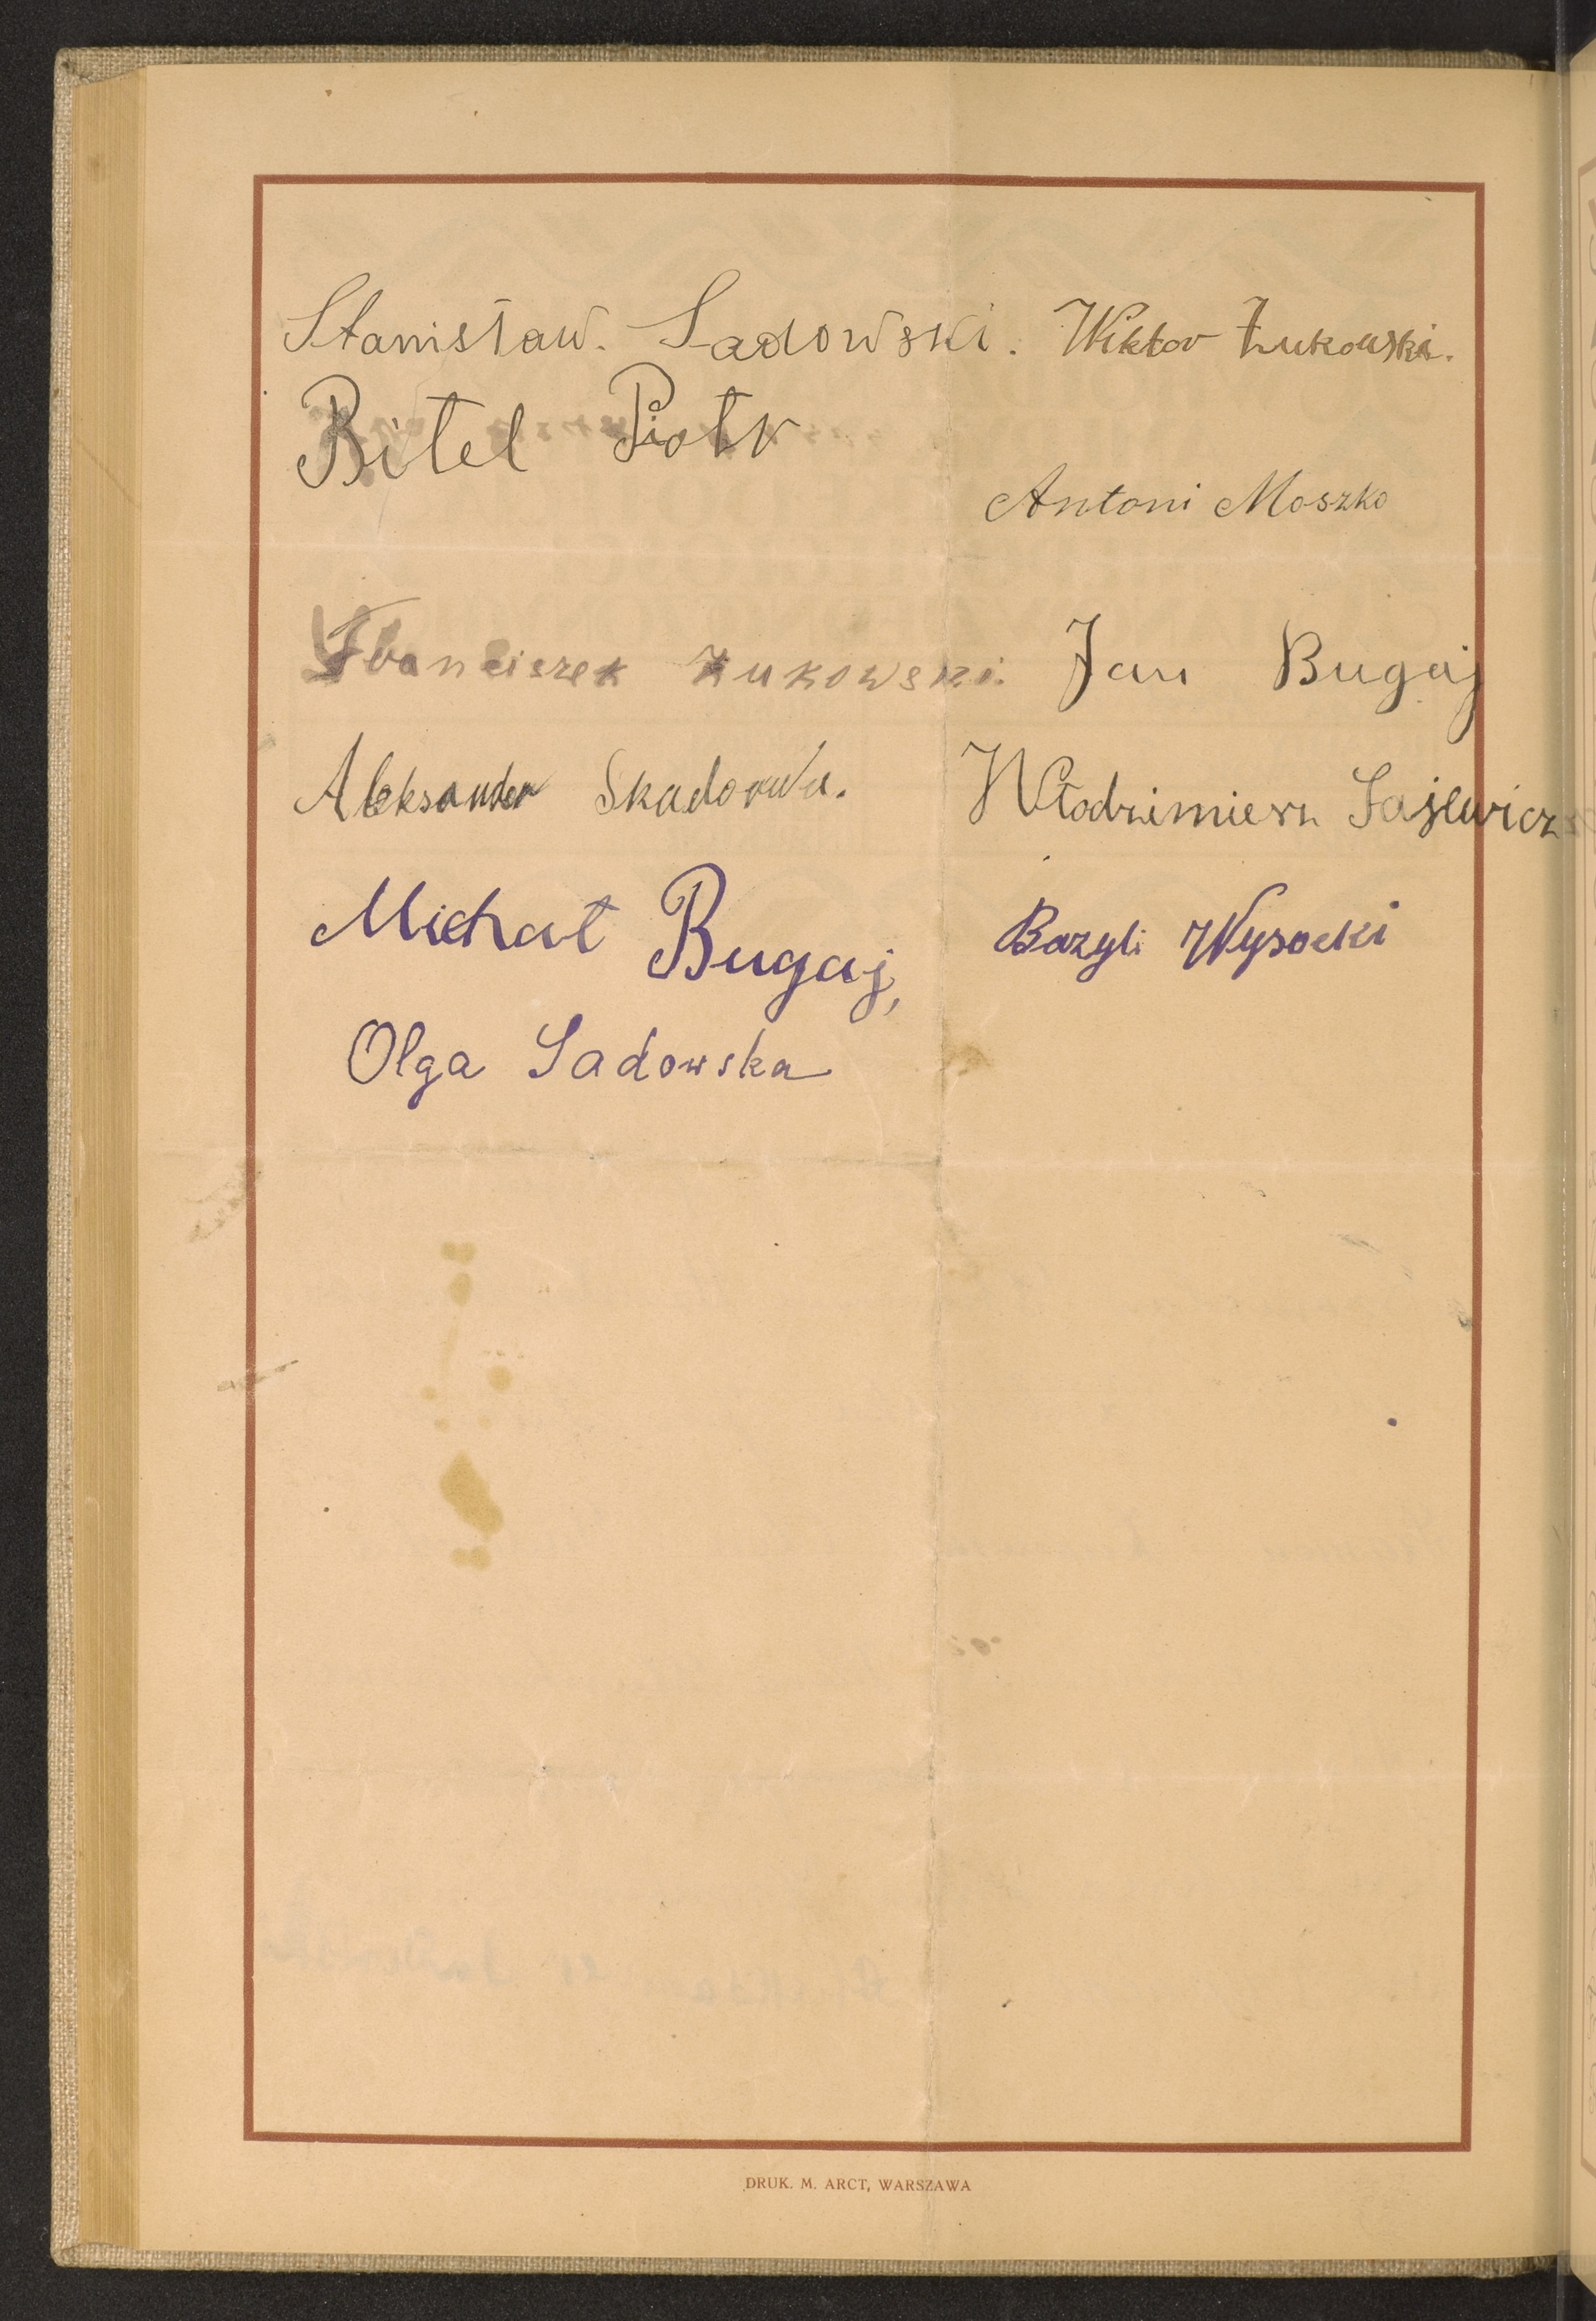 Stanisław. Sadowski. Wiktor Żukowski.
Bitel Piotr
Antoni Moszko
Franciszek Żukowski. Jan Bugaj
Aleksander Włodzimierz Sajewicz
Michał Bugaj, Bazyli Wysocki
Olga Sadowska
DRUK. M. ARCT, WARSZAWA